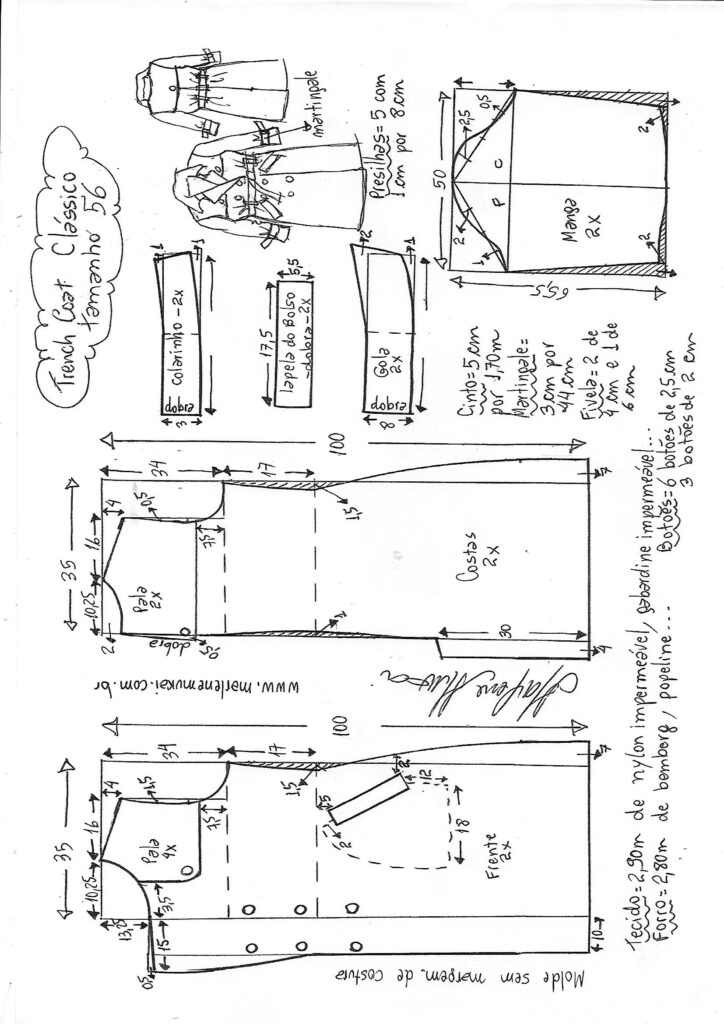 Trench Coat Clássico
tamanho 56
35
10,25
16
4
34
1,5
Pala
4x
13,25
3,5
7,5
0,5
15
17
100
1,5
2
5
12
2
18
Frente
2x
10
7
Molde sem margem. de costura
www.marlenemukai.com.br
35
10,25
16
4
34
2
0,5
Pala
2x
dobra
0,5
7,5
17
100
1
1,5
Costas
2x
30
4
7
colarinho - 2x
dobra
3
1
1
lapela do Bolso
- dobra - 2x
17,5
5,5
Gola
2x
dobra
8
2
martingale
Presilhas = 5 com
1 cm por 8 cm
50
65,5
1
2
2,5
0,5
P
C
Manga
2x
2
2
Cinto = 5 cm
por 1,70m
Martingale =
3 cm por
44 cm
Fivela = 2 de
4 cm e 1 de
6 cm
Tecido = 2,90m de nylon impermeável, gabardine impermeável...
Forro = 2,80m de bemberg, popeline...
Botões = 6 botões de 2,5 cm
3 botões de 2 cm